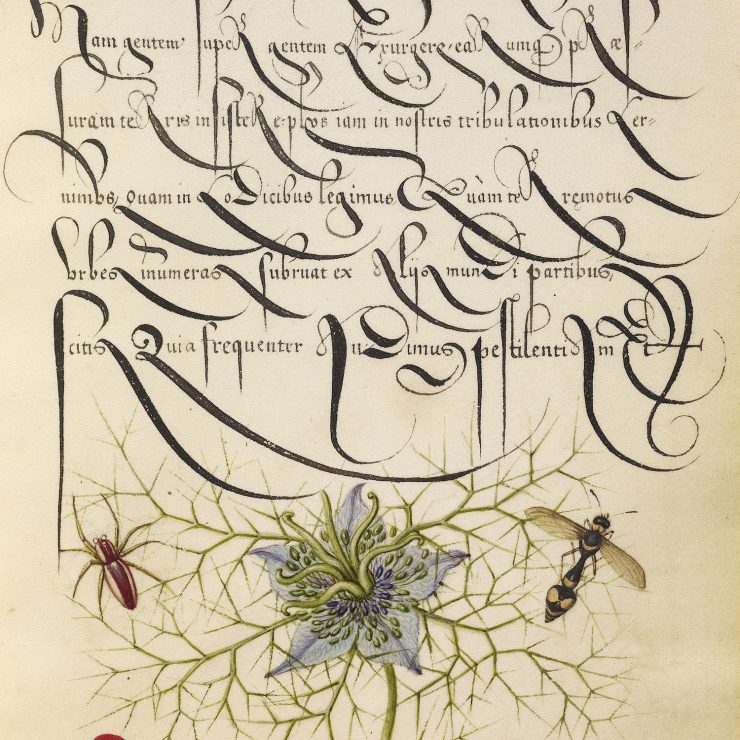 Nam gentem super gentem Exurgere, earumq; præs-
suram terris insistere, plus iam in nostris tribulationibus Cer-
nimus, Quam in Codicibus legimus, Quàm te remotus
Vrbes innumeras subruat ex alijs mundi partibus,
scitis Quia frequenter audiuimus pestilentiam Et